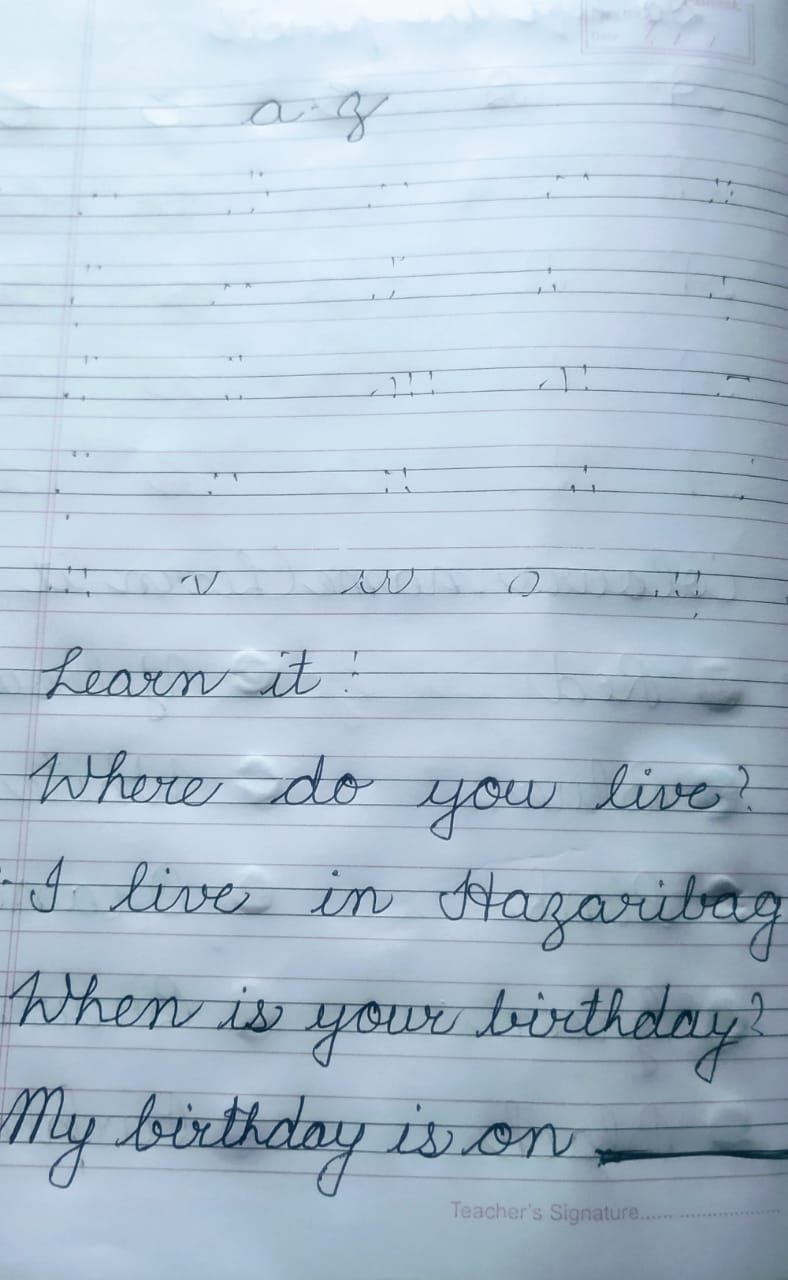 a-z
v w o
Learn it:
Where do you live?
I live in Hazaribag
When is your birthday?
My birthday is on ______
Teacher's Signature..................